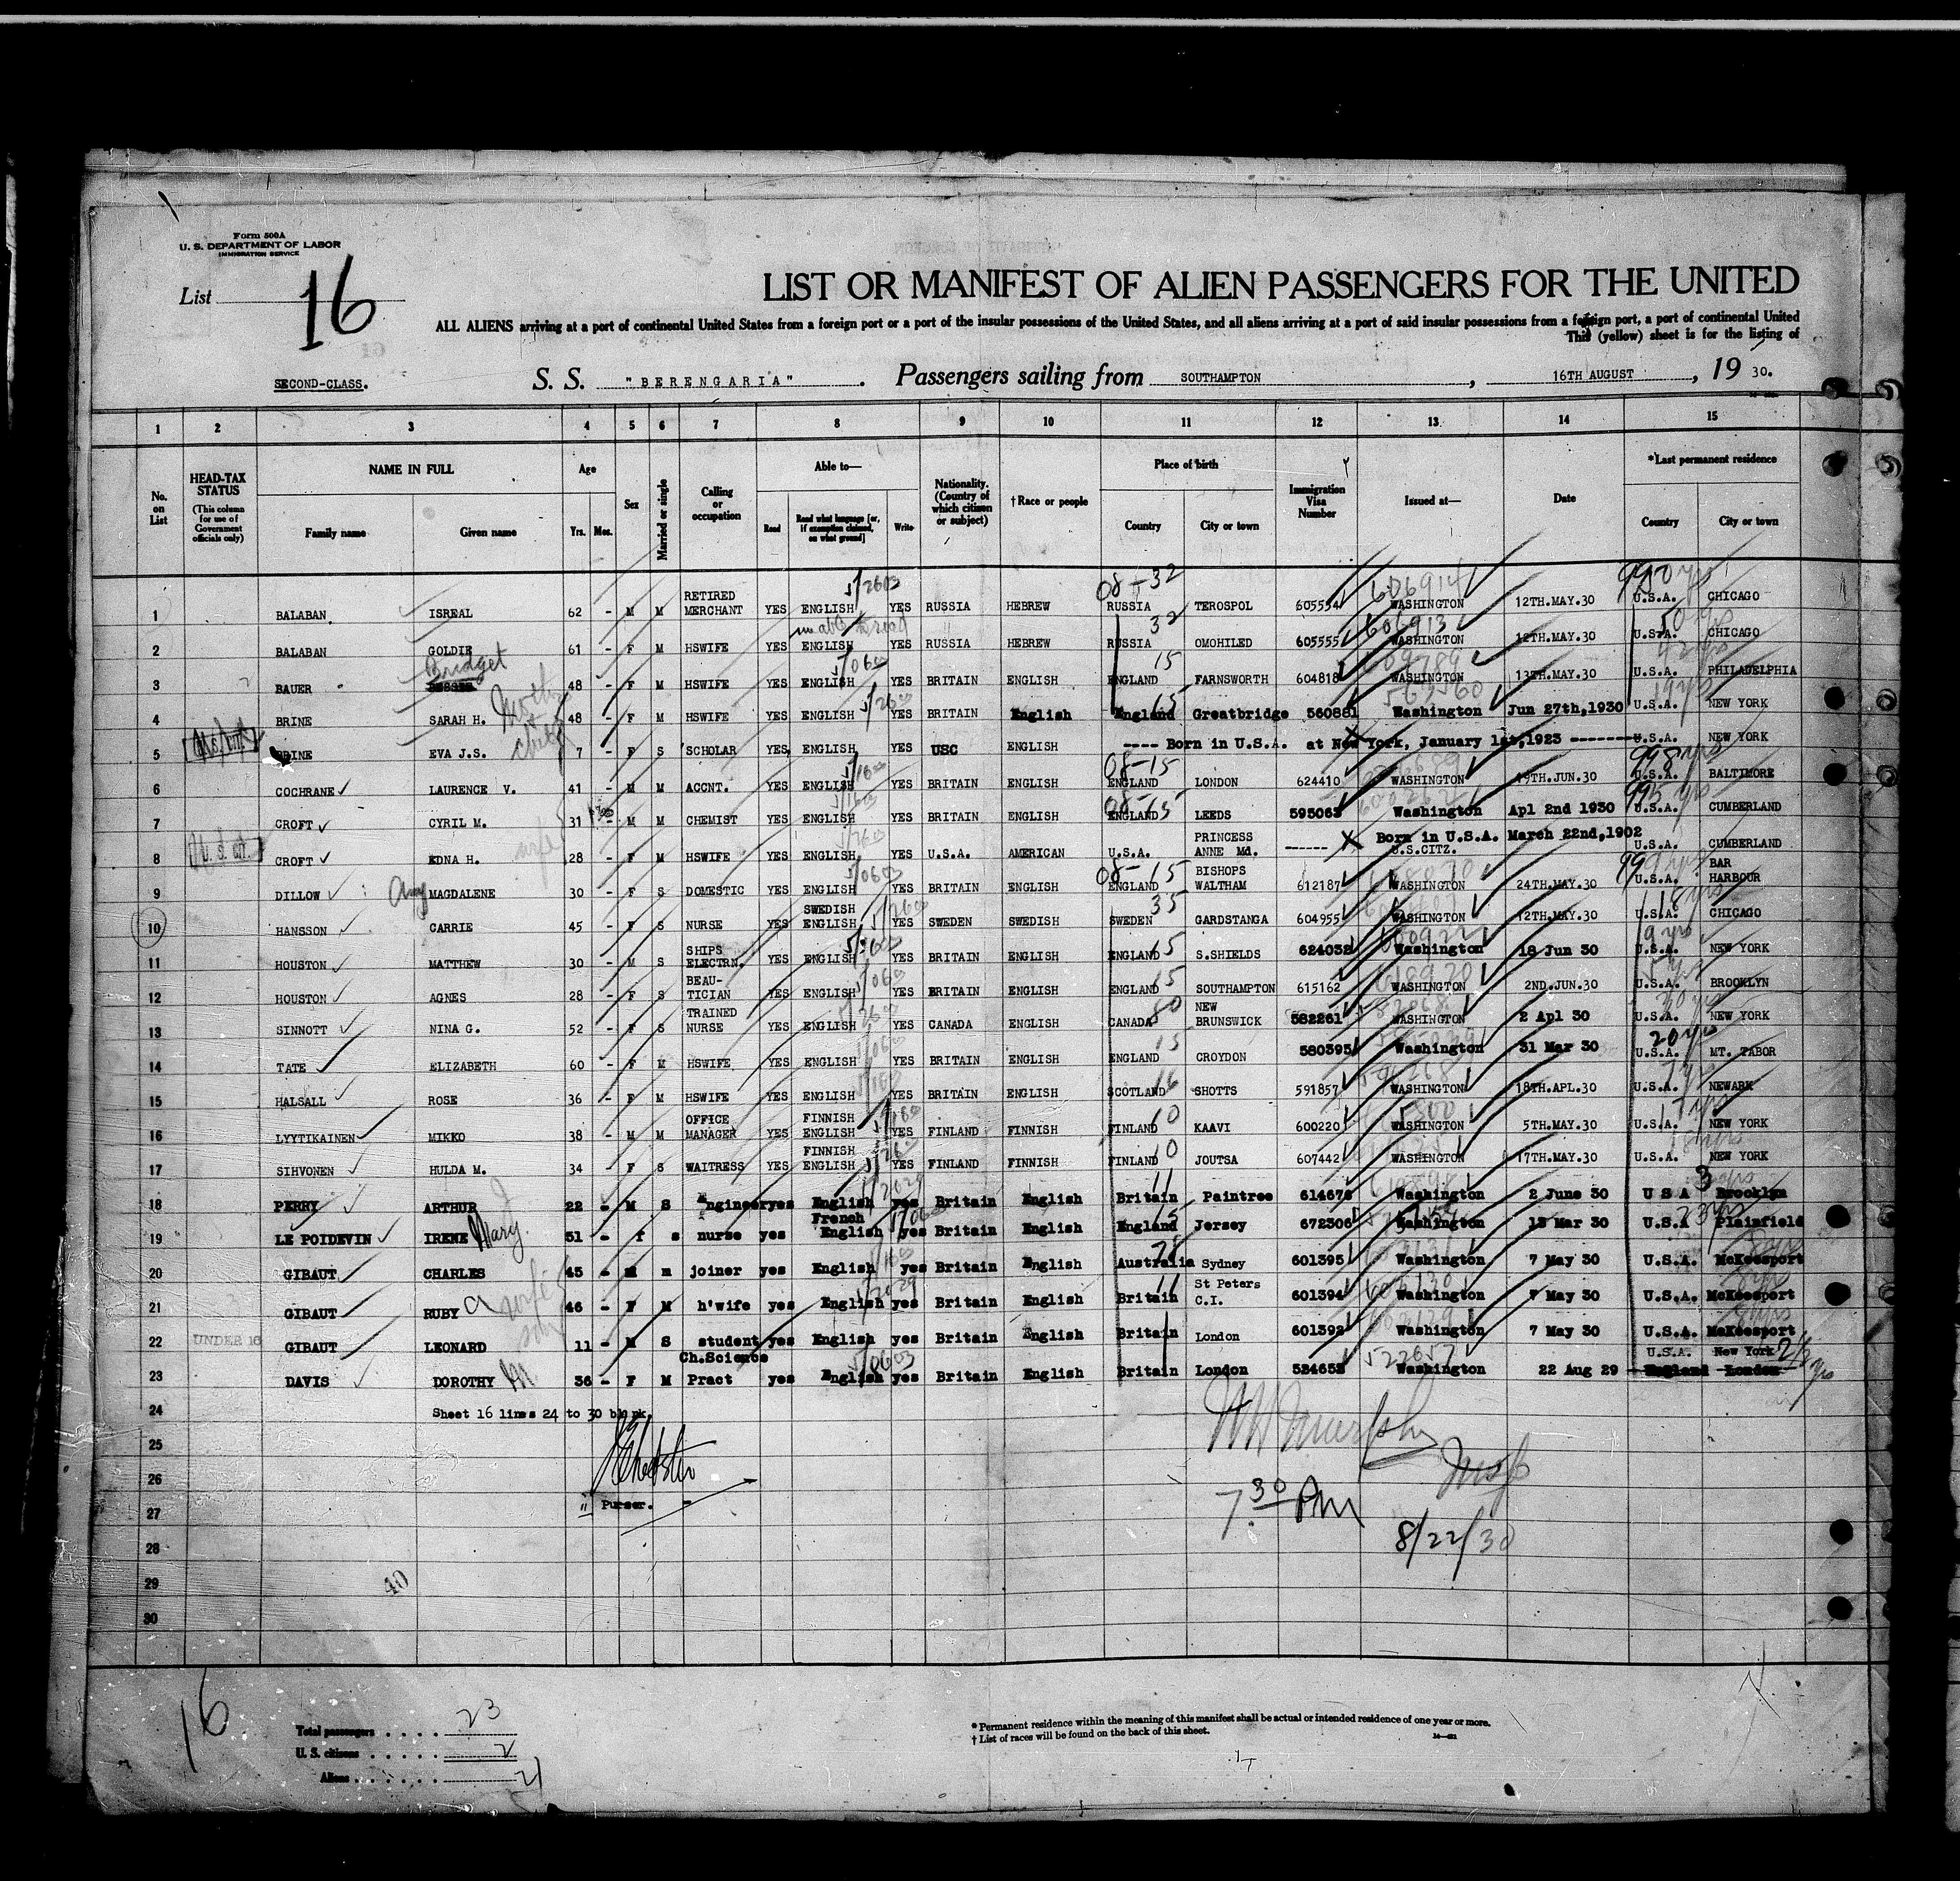 Form 500A
U. S. DEPARTMENT OF LABOR
IMMIGRATION SERVICE
List 16
LIST OR MANIFEST OF ALIEN PASSENGERS FOR THE UNITED
ALL ALIENS arriving at a port of continental United States from a foreign port or a port of the insular possessions of the United States, and all aliens arriving at a port of said insular possessions from a foreign port, a port of continental United
This (yellow) sheet is for the listing of
SECOND-CLASS. S. S. "BERENGARIA". Passengers sailing from SOUTHAMPTON, 16TH AUGUST, 19 30.
1 2 3 4 5 6 7 8 9 10 11 12 13 14 15
No. on List
HEAD-TAX STATUS (This column for use of Government officials only)
NAME IN FULL Family name Given name
Age Yrs. Mos.
Sex
Married or single
Calling or occupation
Able to— Read Read what language [or, if exemption claimed, on what ground] Write
Nationality. (Country of which citizen or subject)
† Race or people
Place of birth Country City or town
Immigration Visa Number
Issued at—
Date
*Last permanent residence Country City or town
1 BALABAN ISREAL 62 - M M RETIRED MERCHANT YES ENGLISH YES RUSSIA HEBREW RUSSIA TEROSPOL 605554 WASHINGTON 12TH.MAY.30 U.S.A. CHICAGO
2 BALABAN GOLDIE 61 - F M HSWIFE YES ENGLISH YES RUSSIA HEBREW RUSSIA OMOHILED 605555 WASHINGTON 12TH.MAY.30 U.S.A. CHICAGO
3 BAUER Bridget 48 - F M HSWIFE YES ENGLISH YES BRITAIN ENGLISH ENGLAND FARNSWORTH 604818 WASHINGTON 13TH.MAY.30 U.S.A. PHILADELPHIA
4 BRINE SARAH H. Mother 48 - F M HSWIFE YES ENGLISH YES BRITAIN English England Greatbridge 560881 Washington Jun 27th,1930 U.S.A. NEW YORK
5 BRINE EVA J.S. child 7 - F S SCHOLAR YES ENGLISH YES USC ENGLISH ---- Born in U.S.A. at New York, January 1st,1923 -------- U.S.A. NEW YORK
6 COCHRANE LAURENCE V. 41 - M M ACCNT. YES ENGLISH YES BRITAIN ENGLISH ENGLAND LONDON 624410 WASHINGTON 19TH.JUN.30 U.S.A. BALTIMORE
7 CROFT CYRIL M. 31 - M M CHEMIST YES ENGLISH YES BRITAIN ENGLISH ENGLAND LEEDS 595063 Washington Apl 2nd 1930 U.S.A. CUMBERLAND
8 U. S. CIT. CROFT EDNA H. wife 28 - F M HSWIFE YES ENGLISH YES U.S.A. AMERICAN U.S.A. PRINCESS ANNE Md. ------ X Born in U.S.A. March 22nd,1902 U.S.CITZ. U.S.A. CUMBERLAND
9 DILLOW Amy MAGDALENE 30 - F S DOMESTIC YES ENGLISH YES BRITAIN ENGLISH ENGLAND BISHOPS WALTHAM 612187 WASHINGTON 24TH.MAY.30 U.S.A. BAR HARBOUR
10 HANSSON CARRIE 45 - F S NURSE YES SWEDISH ENGLISH YES SWEDEN SWEDISH SWEDEN GARDSTANGA 604955 WASHINGTON 12TH.MAY.30 U.S.A. CHICAGO
11 HOUSTON MATTHEW 30 - M S SHIPS ELECTRN. YES ENGLISH YES BRITAIN ENGLISH ENGLAND S.SHIELDS 624038 Washington 18 Jun 30 U.S.A. NEW YORK
12 HOUSTON AGNES 28 - F S BEAU-TICIAN YES ENGLISH YES BRITAIN ENGLISH ENGLAND SOUTHAMPTON 615162 WASHINGTON 2ND.JUN.30 U.S.A. BROOKLYN
13 SINNOTT NINA G. 52 - F S TRAINED NURSE YES ENGLISH YES CANADA ENGLISH CANADA NEW BRUNSWICK 582261 WASHINGTON 2 Apl 30 U.S.A. NEW YORK
14 TATE ELIZABETH 60 - F M HSWIFE YES ENGLISH YES BRITAIN ENGLISH ENGLAND CROYDON 580395 Washington 31 Mar 30 U.S.A. MT. TABOR
15 HALSALL ROSE 36 - F M HSWIFE YES ENGLISH YES BRITAIN ENGLISH SCOTLAND SHOTTS 591857 WASHINGTON 18TH.APL.30 U.S.A. NEWARK
16 LYYTIKAINEN MIKKO 38 - M M OFFICE MANAGER YES FINNISH ENGLISH YES FINLAND FINNISH FINLAND KAAVI 600220 WASHINGTON 5TH.MAY.30 U.S.A. NEW YORK
17 SIHVONEN HULDA M. 34 - F S WAITRESS YES FINNISH ENGLISH YES FINLAND FINNISH FINLAND JOUTSA 607442 WASHINGTON 17TH.MAY.30 U.S.A. NEW YORK
18 PERRY ARTHUR 22 - M S Engineer yes English yes Britain English Britain Paintree 614676 Washington 2 June 30 U S A Brooklyn
19 LE POIDEVIN IRENE Mary 51 - f s nurse yes French English yes Britain English England Jersey 672306 Washington 13 Mar 30 U.S.A Plainfield
20 GIBAUT CHARLES 45 - M m joiner yes English yes Britain English Australia Sydney 601395 Washington 7 May 30 U.S.A. McKeesport
21 GIBAUT RUBY a wife 46 - F M h'wife yes English yes Britain English Britain St Peters C.I. 601394 Washington 7 May 30 U.S.A. McKeesport
22 UNDER 16 GIBAUT LEONARD son 11 - M S student yes English yes Britain English Britain London 601392 Washington 7 May 30 U.S.A. McKeesport
23 DAVIS DOROTHY M 36 - F M Ch.Science Pract yes English yes Britain English Britain London 524653 Washington 22 Aug 29 U.S.A. New York England London
24 Sheet 16 lines 24 to 30 blank
25
26
27 Purser.
28
29
30
7.30 PM
8/22/30
40
16
Total passengers . . . . 23
U. S. citizens . . . . . 2
Aliens . . . . . . 21
* Permanent residence within the meaning of this manifest shall be actual or intended residence of one year or more.
† List of races will be found on the back of this sheet.